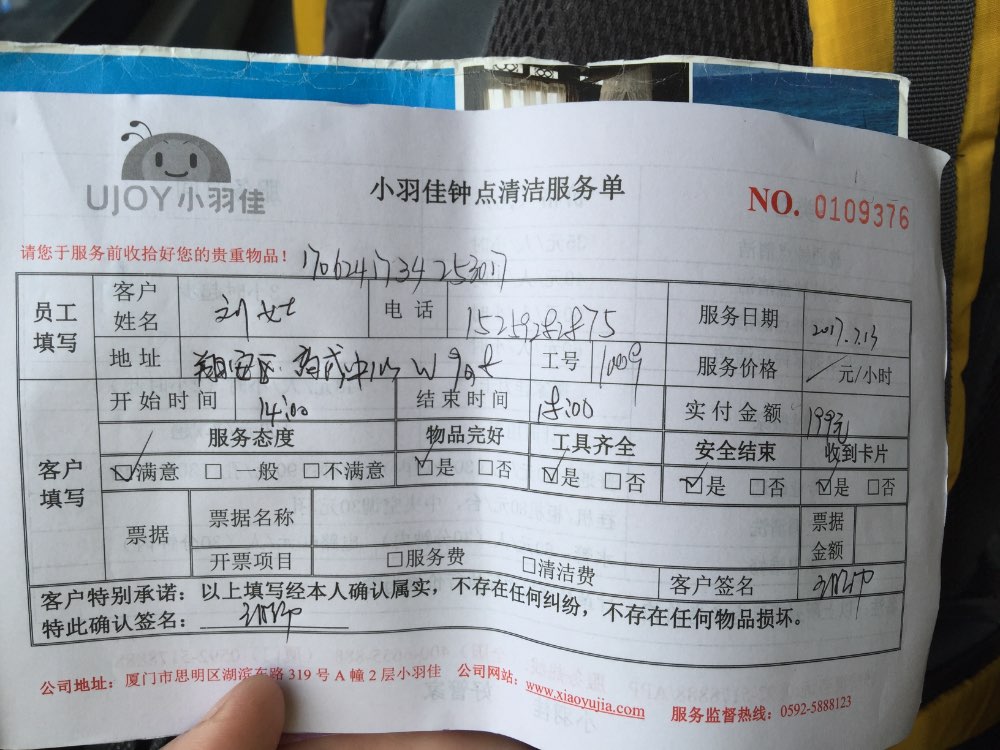 UJOY小羽佳
小羽佳钟点清洁服务单
NO. 0109376
请您于服务前收拾好您的贵重物品！ 1706241734253017
员工填写 客户姓名 刘女士 电话 15259282875 服务日期 2017.7.13
地址 翔安区 中心 W 工号 服务价格 / 元/小时
开始时间 14:00 结束时间 18:00 实付金额 199元
客户填写 服务态度 物品完好 工具齐全 安全结束 收到卡片
☑满意 □一般 □不满意 ☑是 □否 ☑是 □否 ☑是 □否 ☑是 □否
票据 票据名称 票据金额
开票项目 □服务费 □清洁费 客户签名
客户特别承诺：以上填写经本人确认属实，不存在任何纠纷，不存在任何物品损坏。
特此确认签名：
公司地址：厦门市思明区湖滨东路 319 号 A 幢 2 层小羽佳 公司网站：www.xiaoyujia.com 服务监督热线：0592-5888123